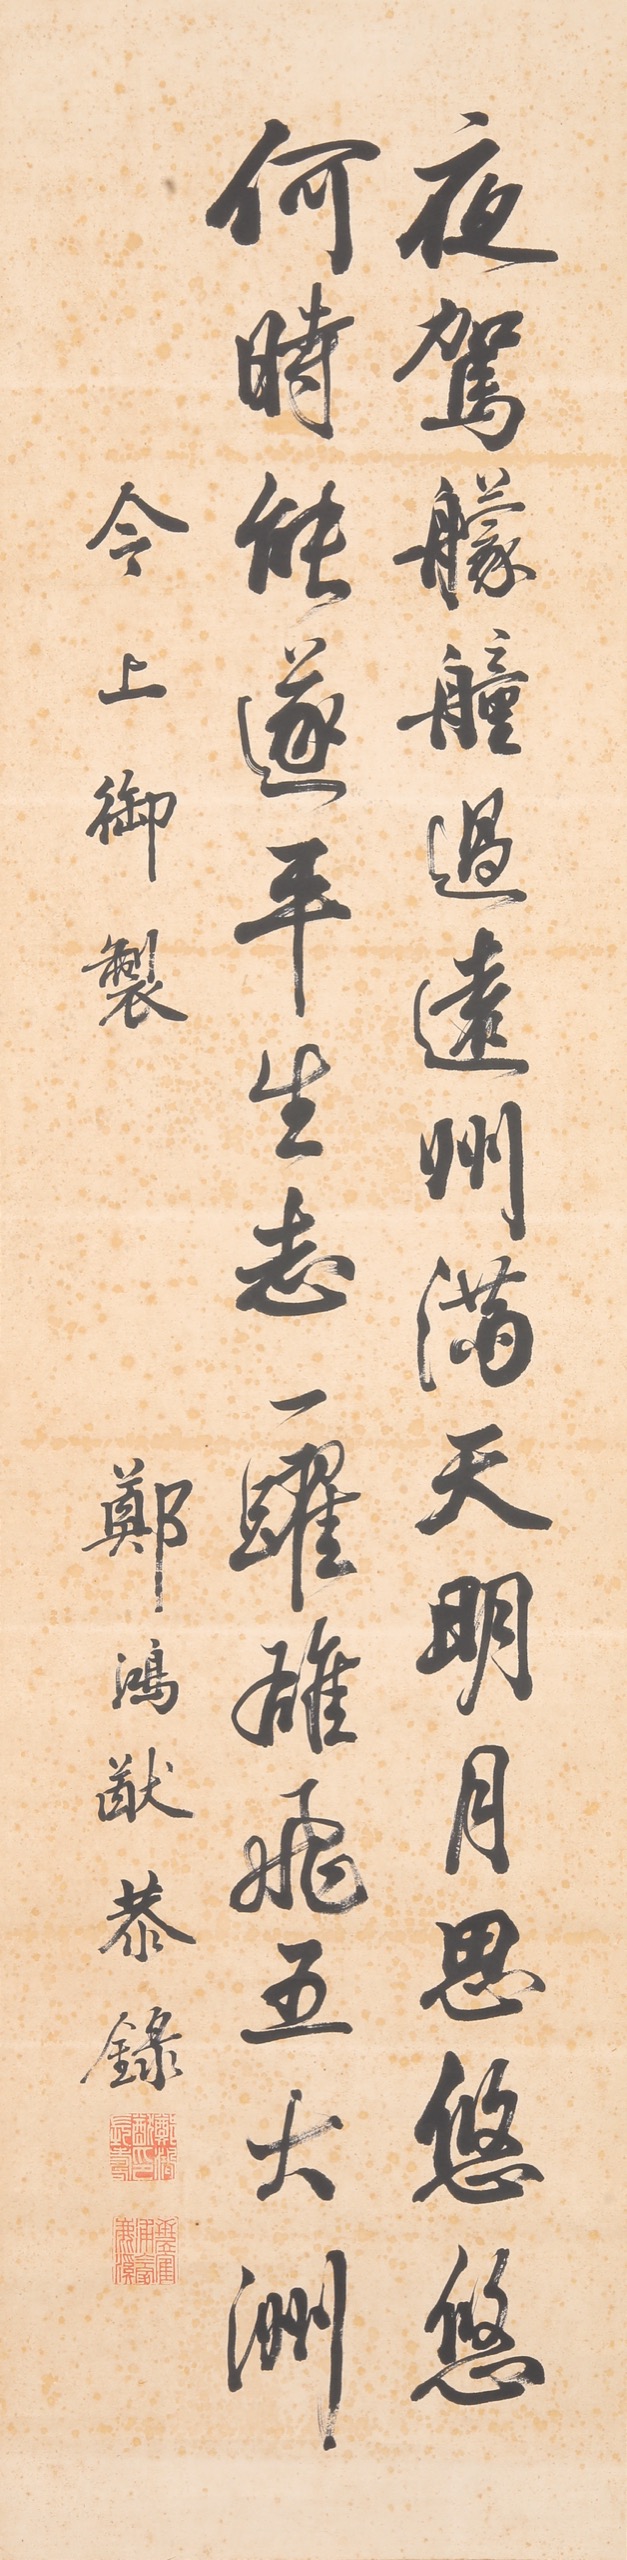 夜駕艨艟過遠州滿天明月思悠悠
何時能遂平生志一躍雄飛五大洲
今上御製
鄭鴻猷恭錄